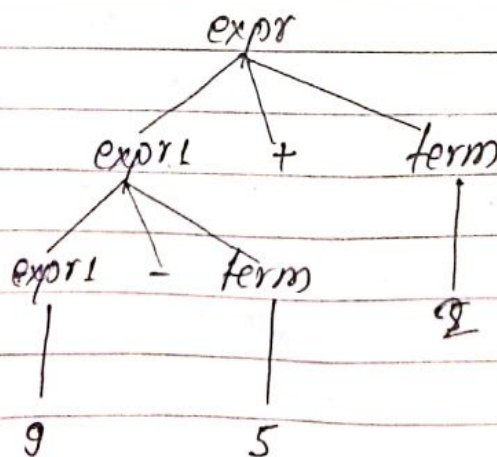 expr
expr1 + term
expr1 - term
2
9 5